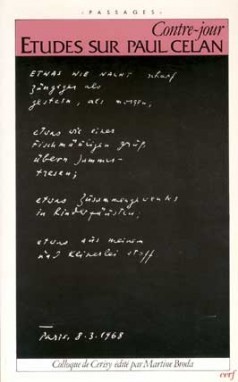 - PASSAGES -
Contre-jour
ETUDES SUR PAUL CELAN
ETWAS WIE NACHT, scharf-
züngiger als
gestern, als morgen;
etwas wie einer
Fischmäuligen Gruß
übern Jammer-
tresen;
etwas Zusammengewehtes
in Kinderfäusten;
etwas aus meinem
und keinerlei Stoff
Paris, 8.3.1968
Colloque de Cerisy édité par Martine Broda
cerf